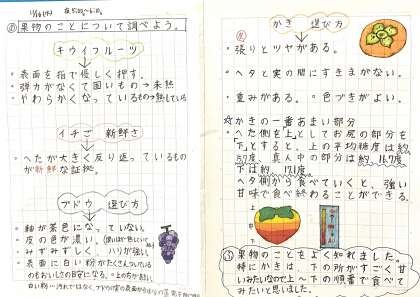 ㋱果物のことについて調べよう。
キウイフルーツ
・表面を指で優しく押す。
・弾力がなくて固いもの→未熟
・やわらかくなっているもの→熟している
イチご 新鮮さ
・へたが大きく反り返っているもの
が新鮮な証拠。
ブドウ 選び方
・軸が茶色になっていない。
・皮の色が濃い。
・みずみずしく ハリがある。
・表面に白い粉がたくさんついている
ものもおいしさの目安になる。
かき 選び方
・張りとツヤがある。
・ヘタと実の間にすきまがない。
・重みがある。 ・色づきがよい。
☆かきの一番あまい部分
・へた側を上としてお尻の部分を
下とすると、上の平均糖度は約
15.7度、真ん中の部分は約16.7度
下は約17.1度
・ヘタ側から食べていくと、強い
甘味で食べ終わることができる。
上
中
下
果物のことをよく知れました。
特にかきは、下の所がすごく甘
いみたいなので上〜下の順番で食べて
みたいと思いました。